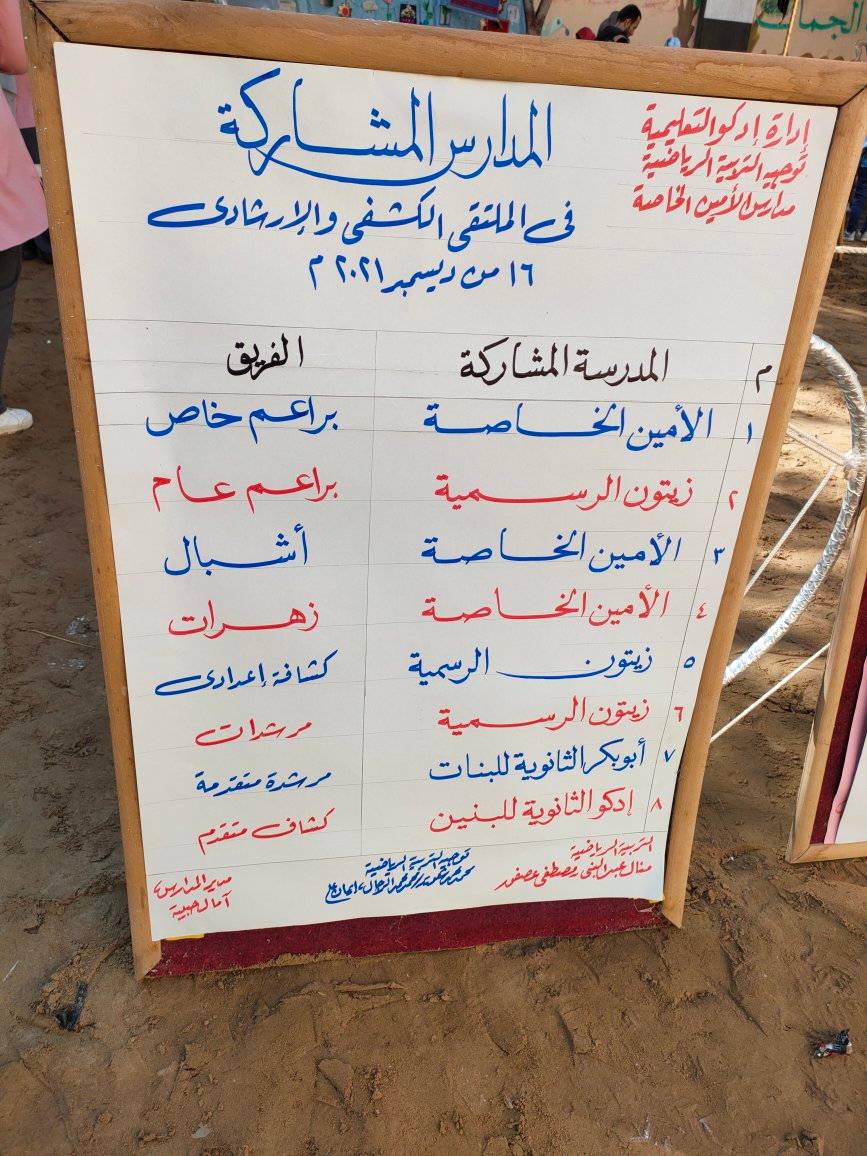 إدارة إدكو التعليمية
توجيه التربية الرياضية
مدارس الأمين الخاصة
المدارس المشاركة
فى الملتقى الكشفى والإرشادى
١٦ من ديسمبر ٢٠٢١ م
م المدرسة المشاركة الفريق
١ الأمين الخاصة براعم خاص
٢ زيتون الرسمية براعم عام
٣ الأمين الخاصة أشبال
٤ الأمين الخاصة زهرات
٥ زيتون الرسمية كشافة إعدادى
٦ زيتون الرسمية مرشدات
٧ أبوبكر الثانوية للبنات مرشدة متقدمة
٨ إدكو الثانوية للبنين كشاف متقدم
التربية الرياضية
منال عبدالنبى ومصطفى عصفور
توجيه التربية الرياضية
مدير المدارس
آمال حبيبة
الجمات